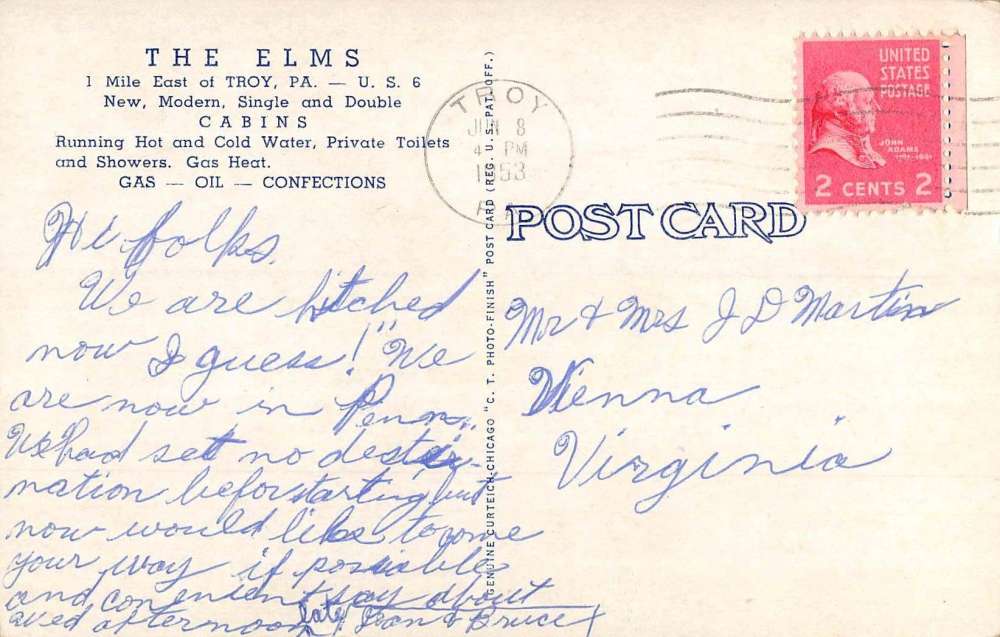 THE ELMS
1 Mile East of TROY, PA. — U. S. 6
New, Modern, Single and Double
CABINS
Running Hot and Cold Water, Private Toilets
and Showers. Gas Heat.
GAS — OIL — CONFECTIONS
Hi folks,
We are hitched
now I guess!" We
are now in Penn.
We had set no desti-
nation before starting but
now would like to come
your way if possible
and convenient say about
wed afternoon late Jean & Bruce
GENUINE CURTEICH-CHICAGO "C. T. PHOTO-FINISH" POST CARD (REG. U. S. PAT. OFF.)
TROY
JUN 8
4 PM
1953
PA
UNITED
STATES
POSTAGE
JOHN
ADAMS
1797-1801
2 CENTS 2
POST CARD
Mr & Mrs J D Martin
Vienna
Virginia